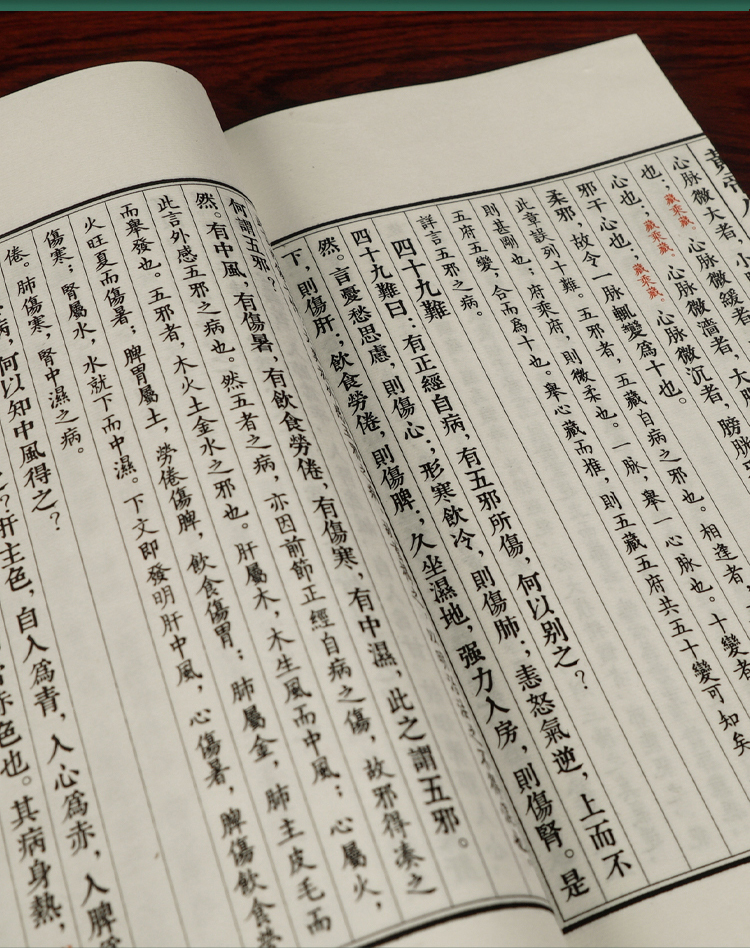 心脈微大者，小
也；藏乘藏。心脈微緩者，
心也；藏乘藏。心脈微濇者，大腸
邪干心也；藏乘藏。心脈微沉者，膀胱
柔邪，故令一脈輒變爲十也。
此章誤列十難。五邪者，五藏自病之邪也。相逢者，
則甚剛也；府乘府，則微柔也。一脈，舉一心脈也。十變者
五府五變，合而爲十也。舉心藏而推，則五藏五府共五十變可知矣
詳言五邪之病。
四十九難
四十九難曰：有正經自病，有五邪所傷，何以別之？
然。言憂愁思慮，則傷心；形寒飲冷，則傷肺；恚怒氣逆，上而不
下，則傷肝；飲食勞倦，則傷脾；久坐濕地，强力入房，則傷腎。是
何謂五邪？
然。有中風，有傷暑，有飲食勞倦，有傷寒，有中濕，此之謂五邪。
此言外感五邪之病也。然五者之病，亦因前節正經自病之傷，故邪得湊之
而舉發也。五邪者，木火土金水之邪也。肝屬木，木生風而中風；心屬火，
火旺夏而傷暑；脾胃屬土，勞倦傷脾，飲食傷胃；肺屬金，肺主皮毛而
傷寒；腎屬水，水就下而中濕。下文即發明肝中風，心傷暑，脾傷飲食勞
倦。肺傷寒，腎中濕之病。
何以知中風得之？
肝主色，自入爲青，入心爲赤，入脾
色也。其病身熱，